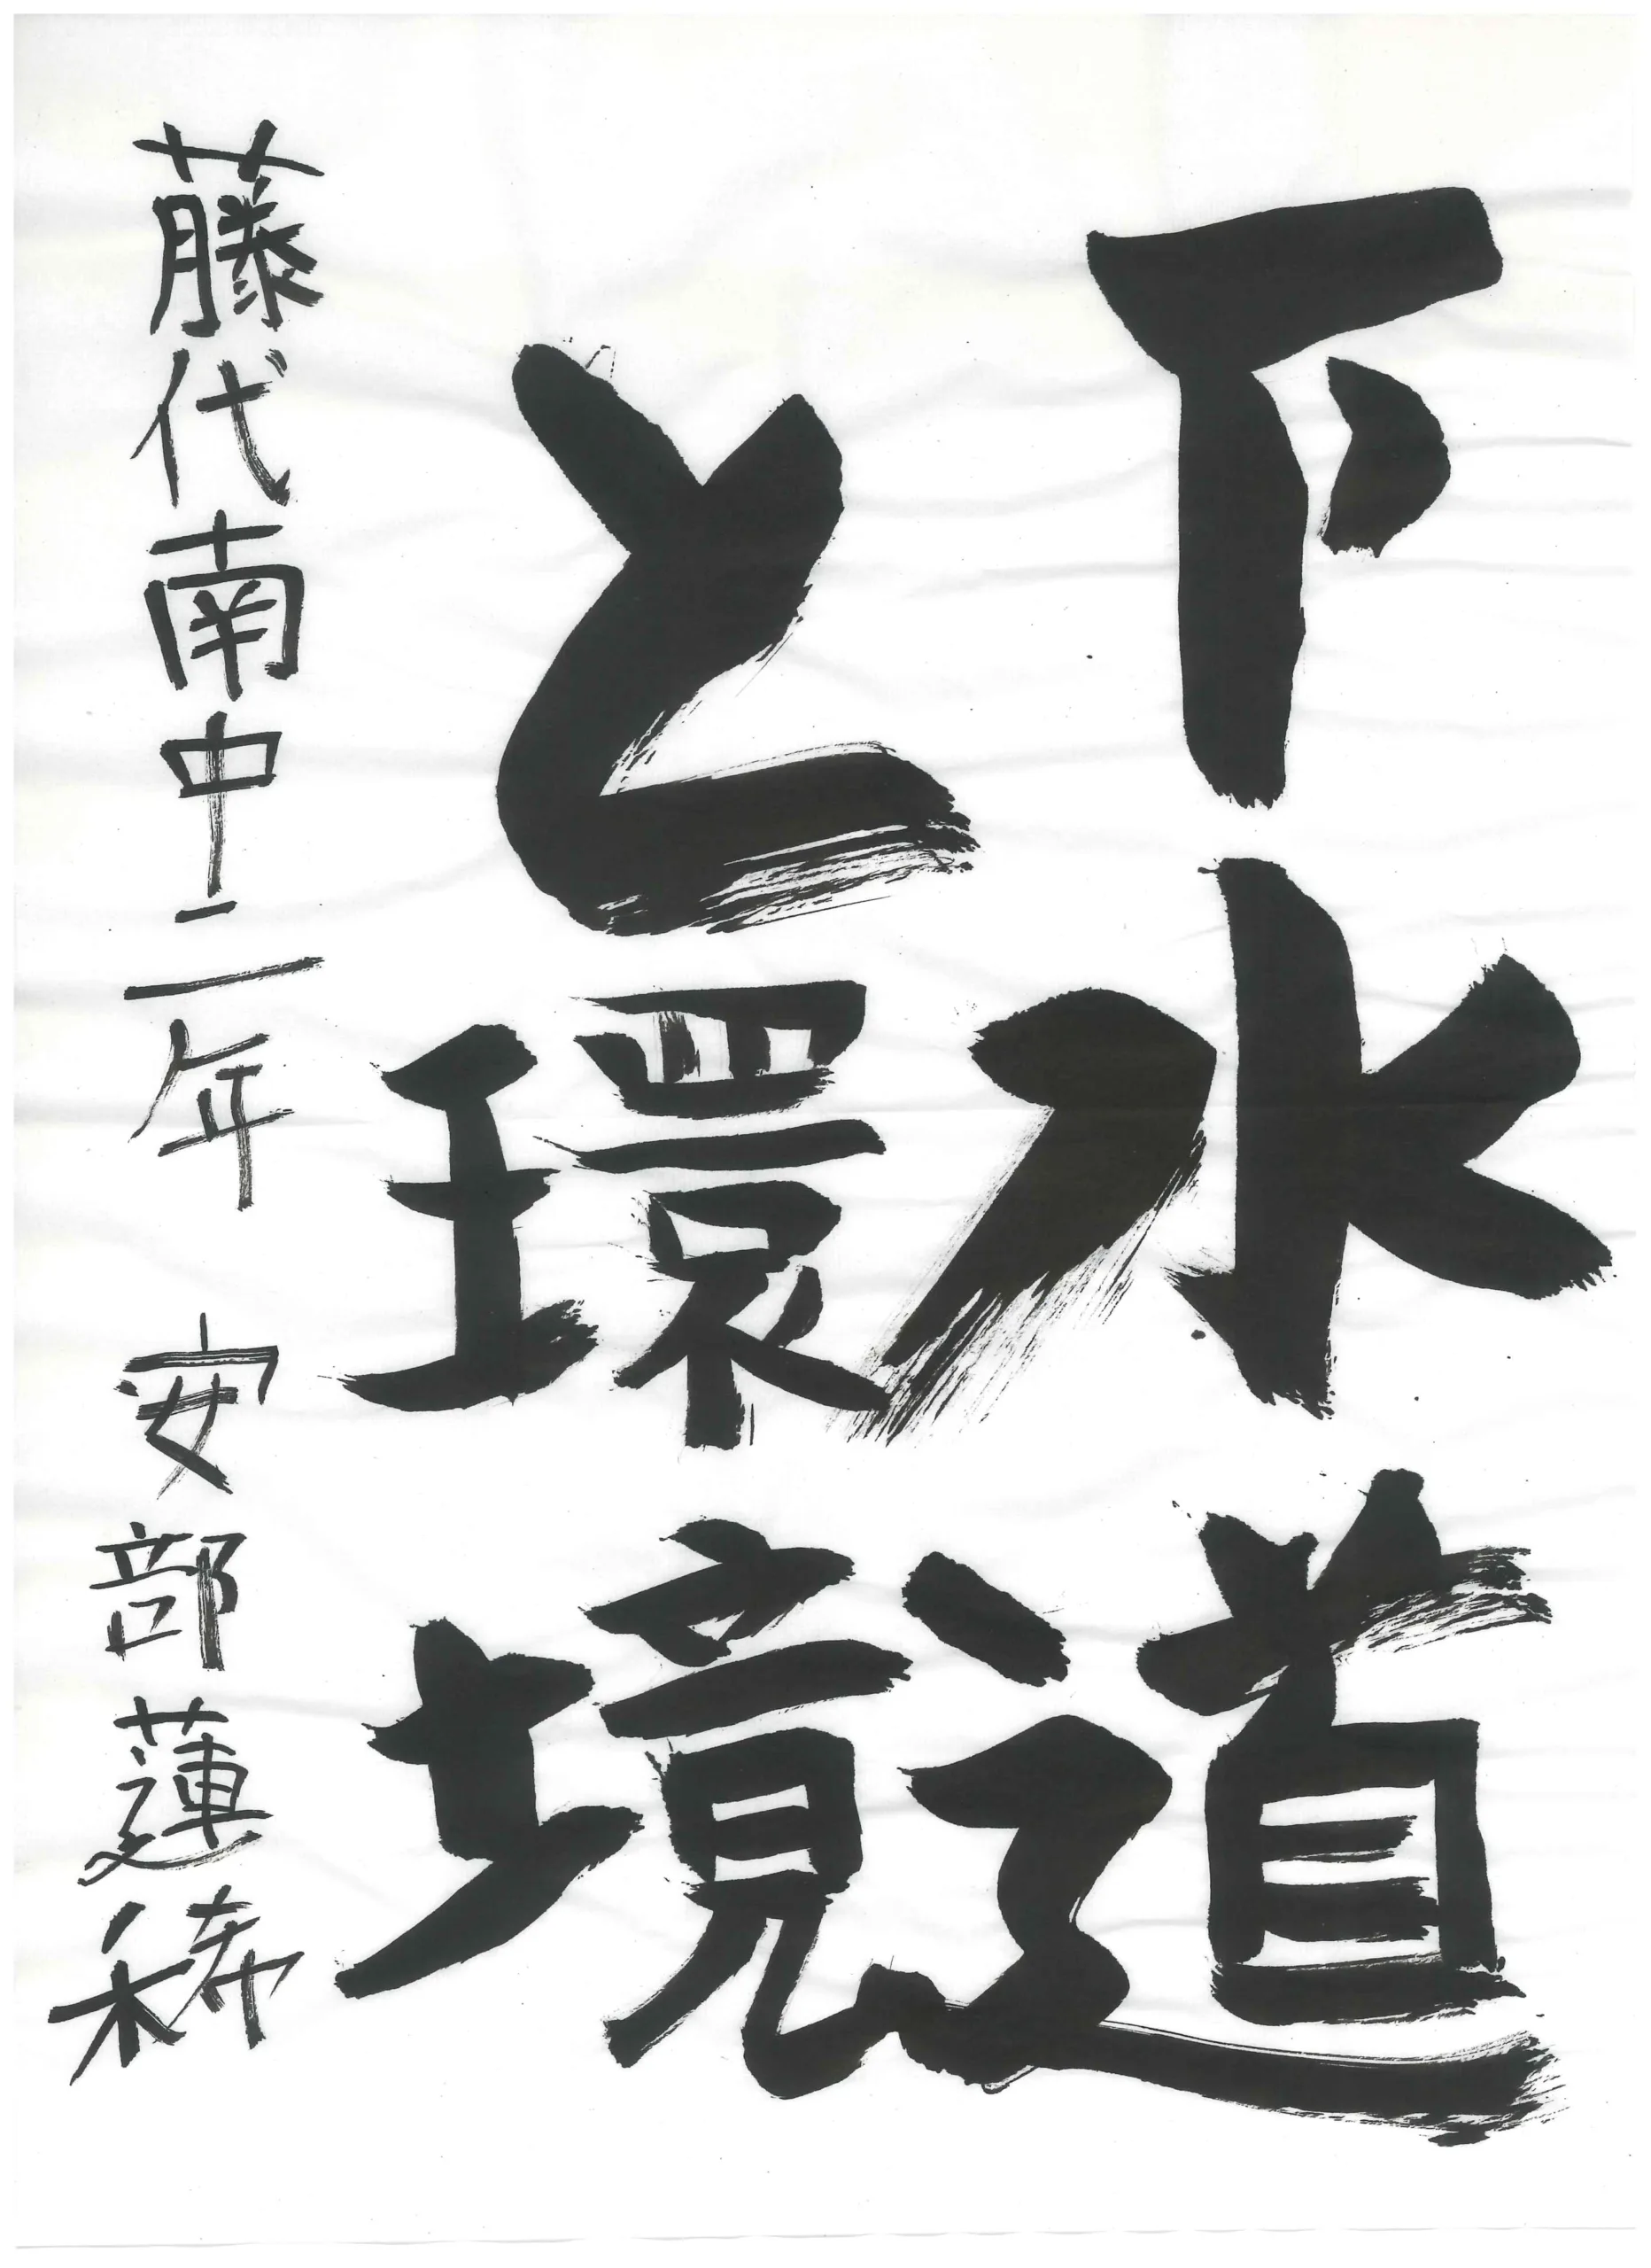 下水道
と環境
藤代南中二年 安部蓮稀